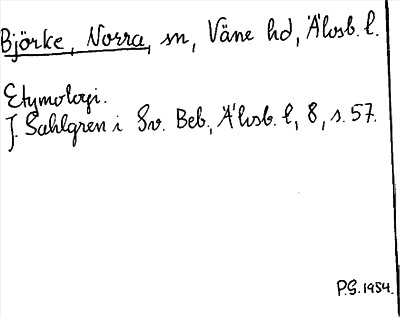 Björke, Norra, sn, Väne hd, Älvsb. l.
Etymologi.
J. Sahlgren i Sv. Beb., Älvsb. l, 8, s. 57.
P.G. 1954.